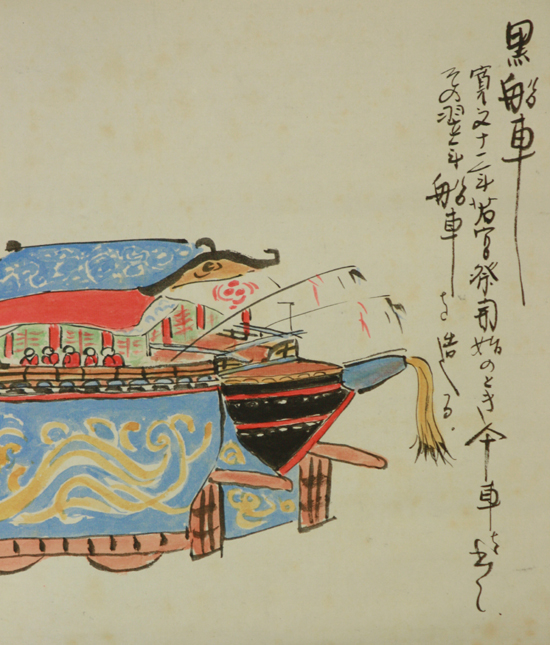 黒船車
寛文十二年若宮祭開始のとき牛車を出し
その翌年船車を造る.